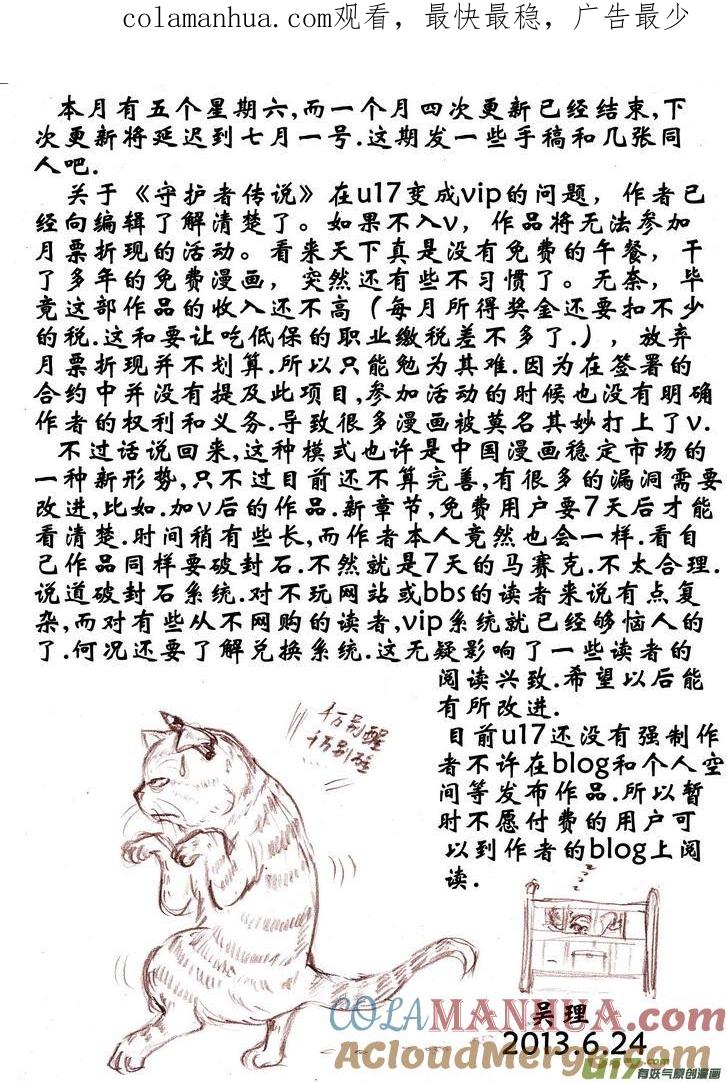 colamanhua.com观看，最快最稳，广告最少
本月有五个星期六,而一个月四次更新已经结束,下
次更新将延迟到七月一号.这期发一些手稿和几张同
人吧.
关于《守护者传说》在u17变成vip的问题，作者已
经向编辑了解清楚了。如果不入v，作品将无法参加
月票折现的活动。看来天下真是没有免费的午餐，干
了多年的免费漫画，突然还有些不习惯了。无奈，毕
竟这部作品的收入还不高（每月所得奖金还要扣不少
的税.这和要让吃低保的职业缴税差不多了.），放弃
月票折现并不划算.所以只能勉为其难.因为在签署的
合约中并没有提及此项目,参加活动的时候也没有明确
作者的权利和义务.导致很多漫画被莫名其妙打上了v.
不过话说回来,这种模式也许是中国漫画稳定市场的
一种新形势,只不过目前还不算完善,有很多的漏洞需要
改进,比如.加v后的作品.新章节,免费用户要7天后才能
看清楚.时间稍有些长,而作者本人竟然也会一样.看自
己作品同样要破封石.不然就是7天的马赛克.不太合理.
说道破封石系统.对不玩网站或bbs的读者来说有点复
杂,而对有些从不网购的读者,vip系统就已经够恼人的
了.何况还要了解兑换系统.这无疑影响了一些读者的
阅读兴致.希望以后能
有所改进.
目前u17还没有强制作
者不许在blog和个人空
间等发布作品.所以暂
时不愿付费的用户可
以到作者的blog上阅
读.
千万别醒
千万别醒
z z z
吴理
2013.6.24
COLAMANHUA.COM
AcloudMerge.com
U17 有妖气原创漫画